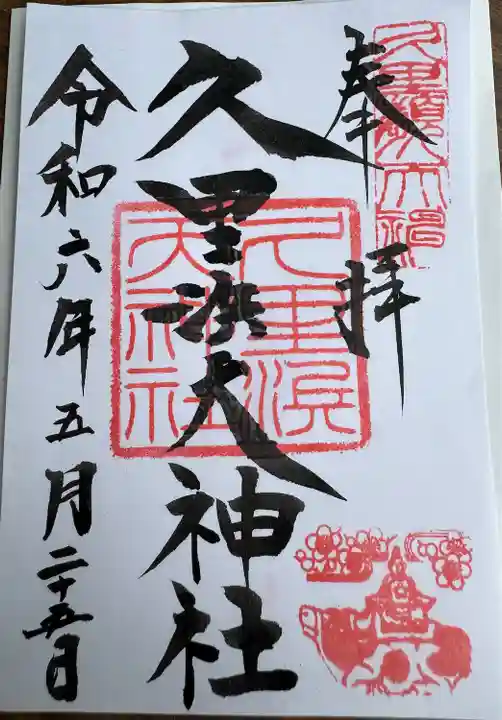 奉拝
久里浜天神社
久里濱天神社
久里浜天神社
令和六年五月二十五日